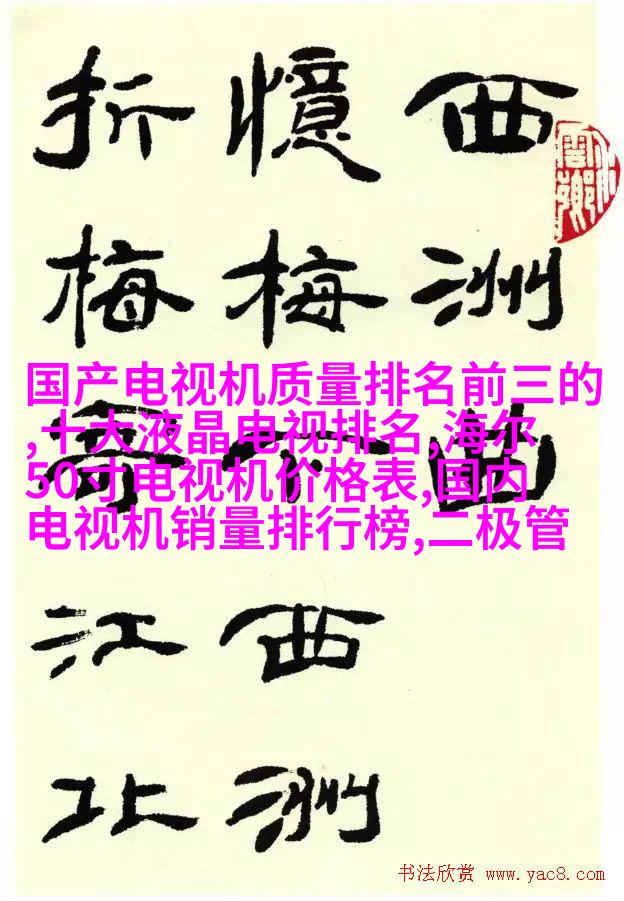 西洲曲
憶梅下西洲
折梅寄江北
国产电视机质量排名前三的
,十大液晶电视排名,海尔
50寸电视机价格表,国内
电视机销量排行榜,二极管
书法欣赏 www.yac8.com